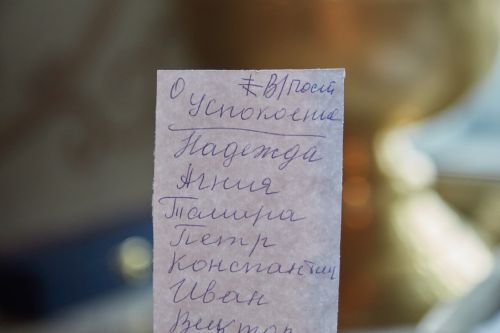 О В/пост
Успокоение
Надежда
Агния
Тамира
Петр
Константин
Иван
Виктор